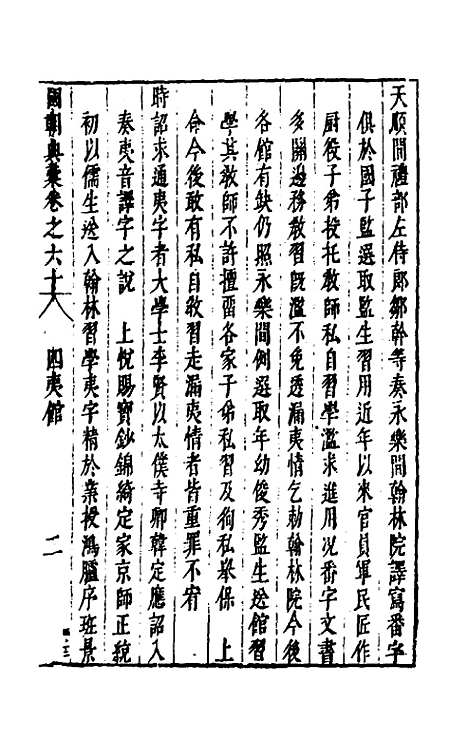 天順間禮部左侍郎鄒幹等奏永樂間翰林院譯寫番字
俱於國子監選取監生習用近年以來官員軍民匠作
厨役子弟投托教師私自習學濫求進用况番字文書
多關邊務教習既濫不免透漏夷情乞勑翰林院今後
各館有缺仍照永樂間例選取年幼俊秀監生送館習
學其教師不許擅留各家子弟私習及徇私舉保　上
命今後敢有私自教習走漏夷情者皆重罪不宥
時詔求通夷字者大學士李賢以太僕寺卿韓定應詔入
奏夷音譯字之說　上悅賜寶鈔錦綺定家京師正統
初以儒生送入翰林習學夷字精於業授鴻臚序班景
國朝典彙卷之六十　四夷館　二